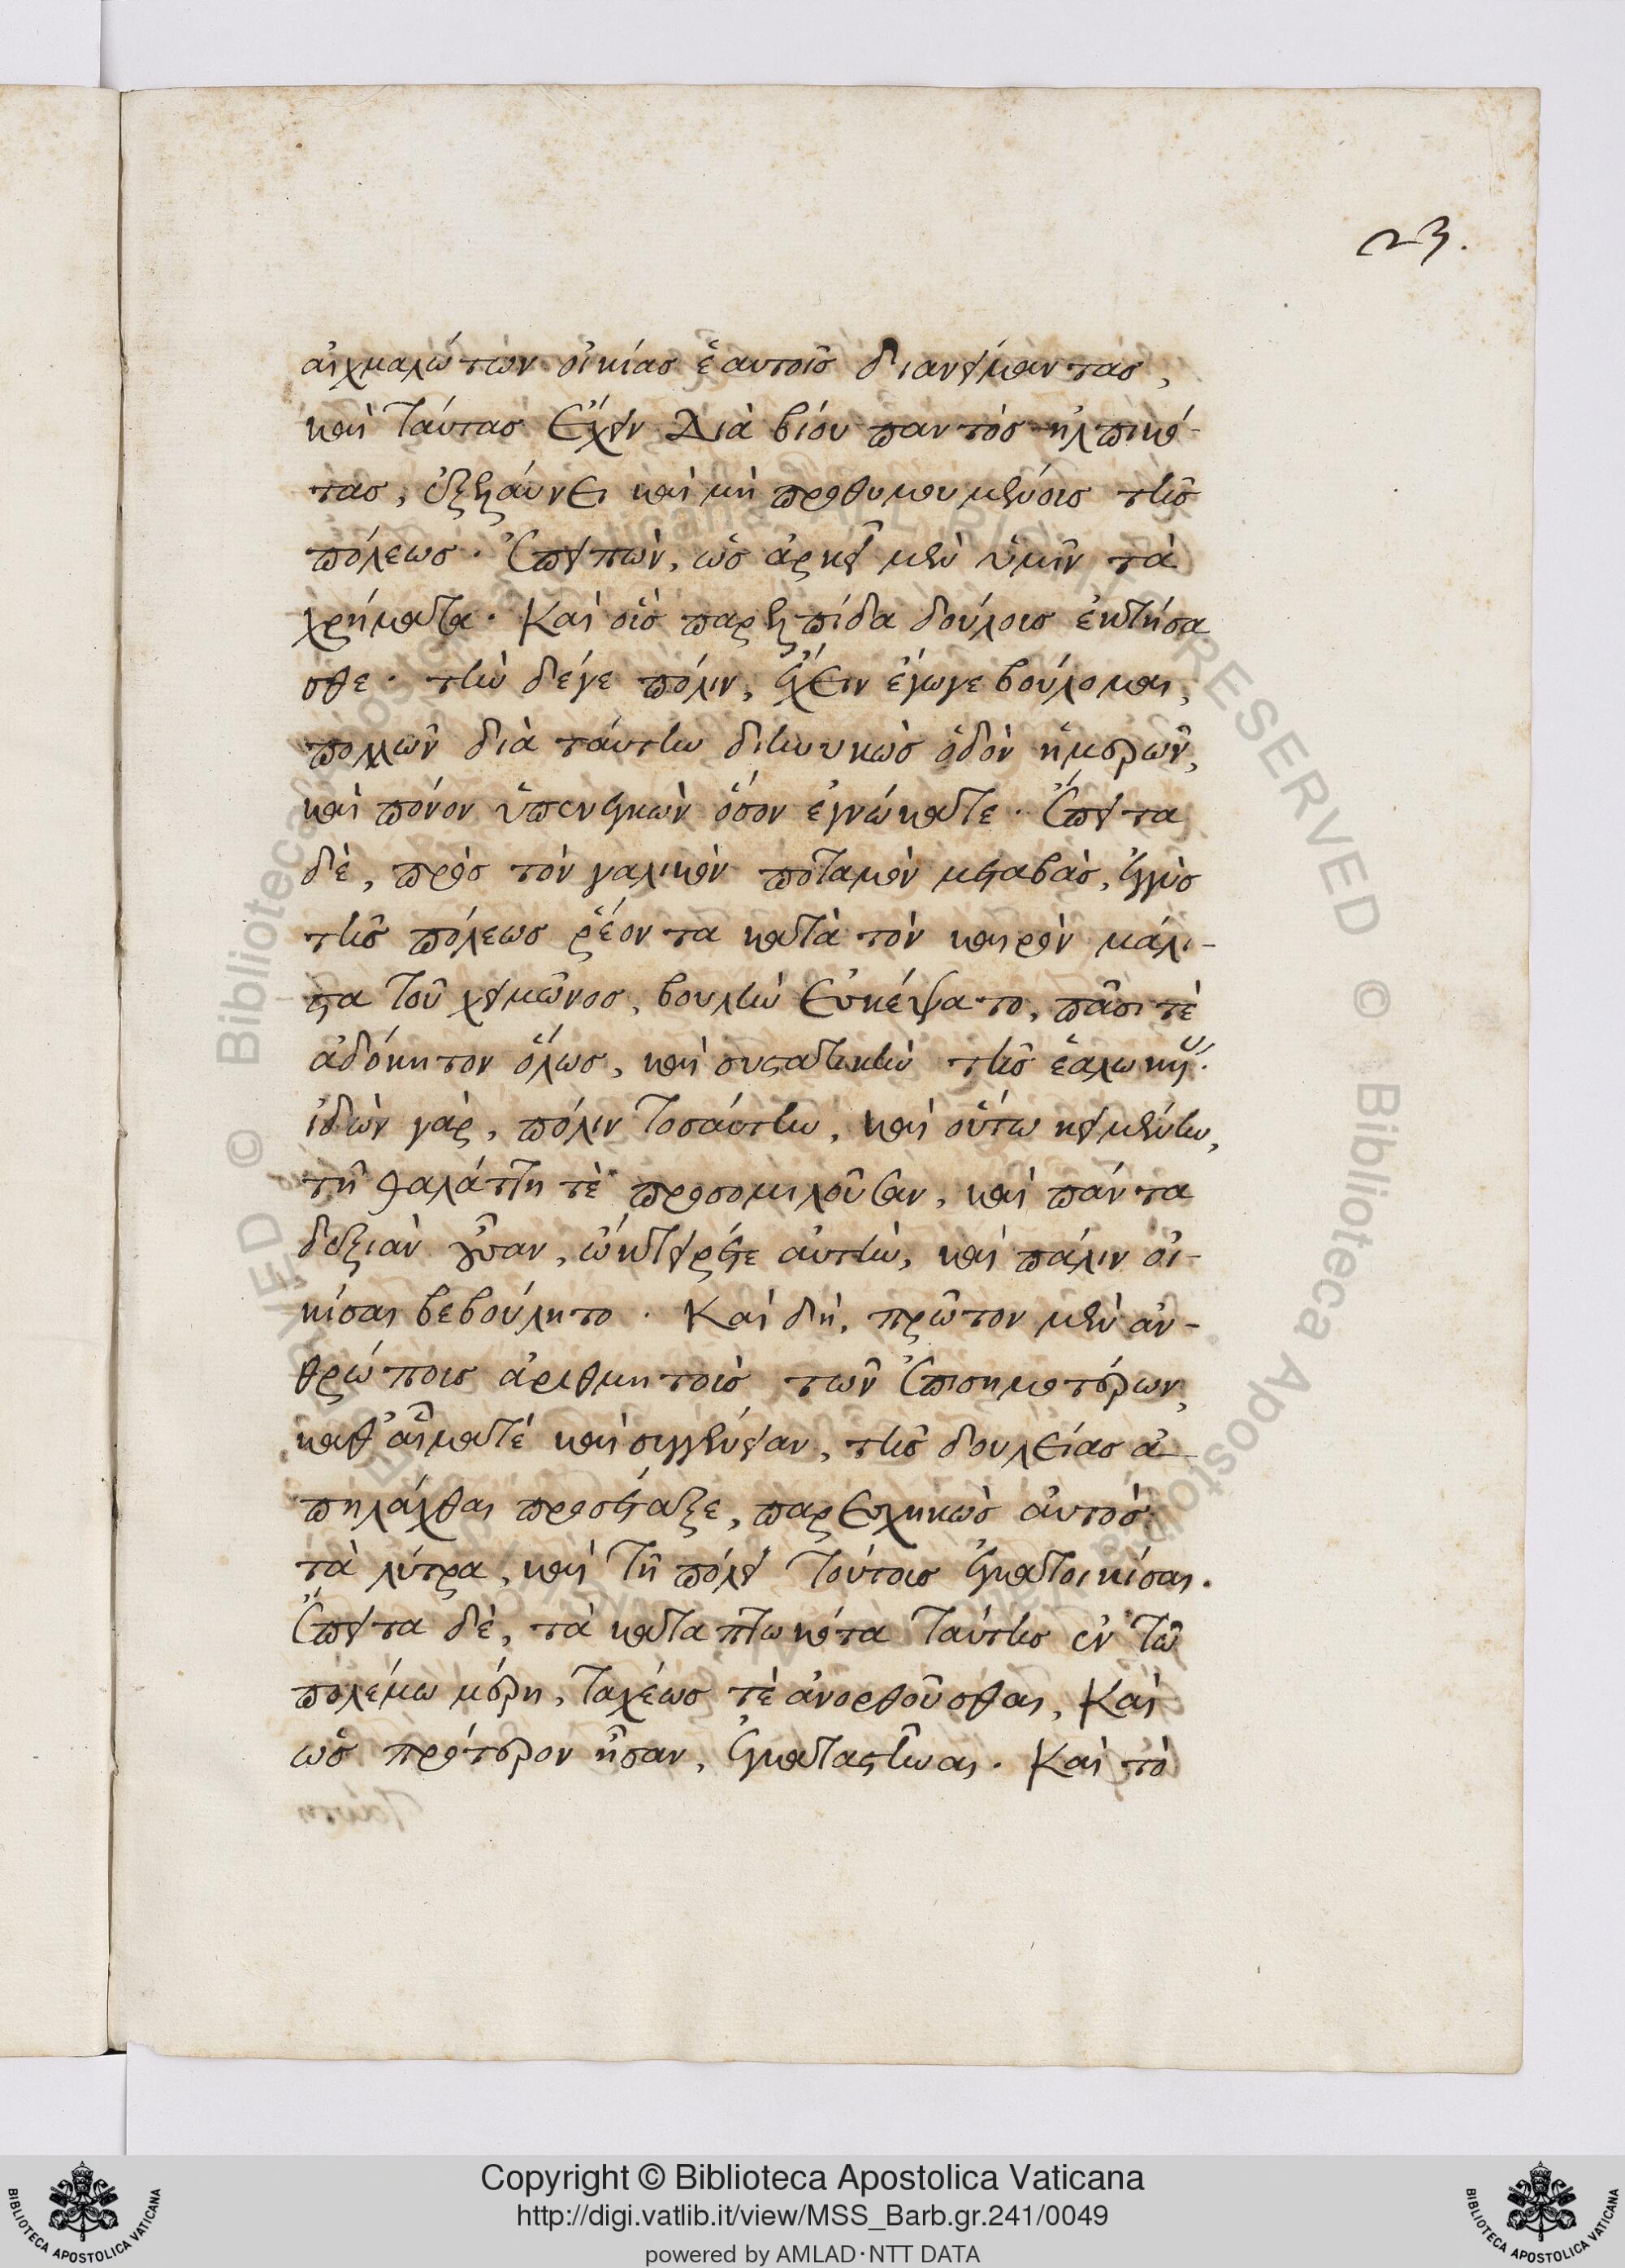 23.
αἰχμαλώτων οἰκίας ἑαυτοῖς διανείμαντας,
καὶ ταύτας ἔχειν διὰ βίου παντὸς ἠλπικό-
τας, ἐξελαύνει καὶ μὴ προθυμουμένοις τῆς
πόλεως. ἐπειπὼν, ὡς ἀρκεῖ μὲν ὑμῖν τὰ
χρήματα. Καὶ οἷς παρελπίδα δούλοις ἐκτήσα
σθε. τὴν δέγε πόλιν, ἔχειν ἔγωγε βούλομαι,
πολλῶν διὰ ταύτην διηνυκὼς ὁδὸν ἡμερῶν,
καὶ πόνον ὑπενεγκὼν ὅσον ἐγνώκατε. ἔπειτα
δὲ, πρὸς τὸν γαλικὸν ποταμὸν μεταβὰς, ἐγγὺς
τῆς πόλεως ῥέοντα κατὰ τὸν καιρὸν μάλι-
στα τοῦ χειμῶνος, βουλὴν ἐσκέψατο, πᾶσι τὲ
ἀδόκητον ὅλως, καὶ συστατικὴν τῆς ἑαλωκυίας.
ἰδὼν γὰρ, πόλιν τοσαύτην, καὶ οὕτω κειμένην,
τῆ θαλάττη τὲ προσομιλοῦσαν, καὶ πάντα
δεξιὰν οὖσαν, ὤκτειρέτε αὐτὴν, καὶ πάλιν οἰ-
κίσαι βεβούλητο. Καὶ δὴ, πρῶτον μὲν ἀν-
θρώποις ἀριθμητοῖς τῶν ἐπισημοτέρων,
καθ αἷματὲ καὶ συγγένειαν, τῆς δουλείας ἀ-
πηλάχθαι προσέταξε, παρεσχηκὼς αὐτὸς
τὰ λύτρα, καὶ τῆ πόλει τούτοις ἐγκατοικίσαι.
ἔπειτα δὲ, τὰ καταπτωκότα ταύτης ἐν τῶ
πολέμω μέρη, ταχέως τὲ ἀνορθοῦσθαι, Καὶ
ὡς πρότερον ἦσαν, ἐγκαταστῆναι. Καὶ τὸ
Copyright © Biblioteca Apostolica Vaticana
http://digi.vatlib.it/view/MSS_Barb.gr.241/0049
powered by AMLAD·NTT DATA